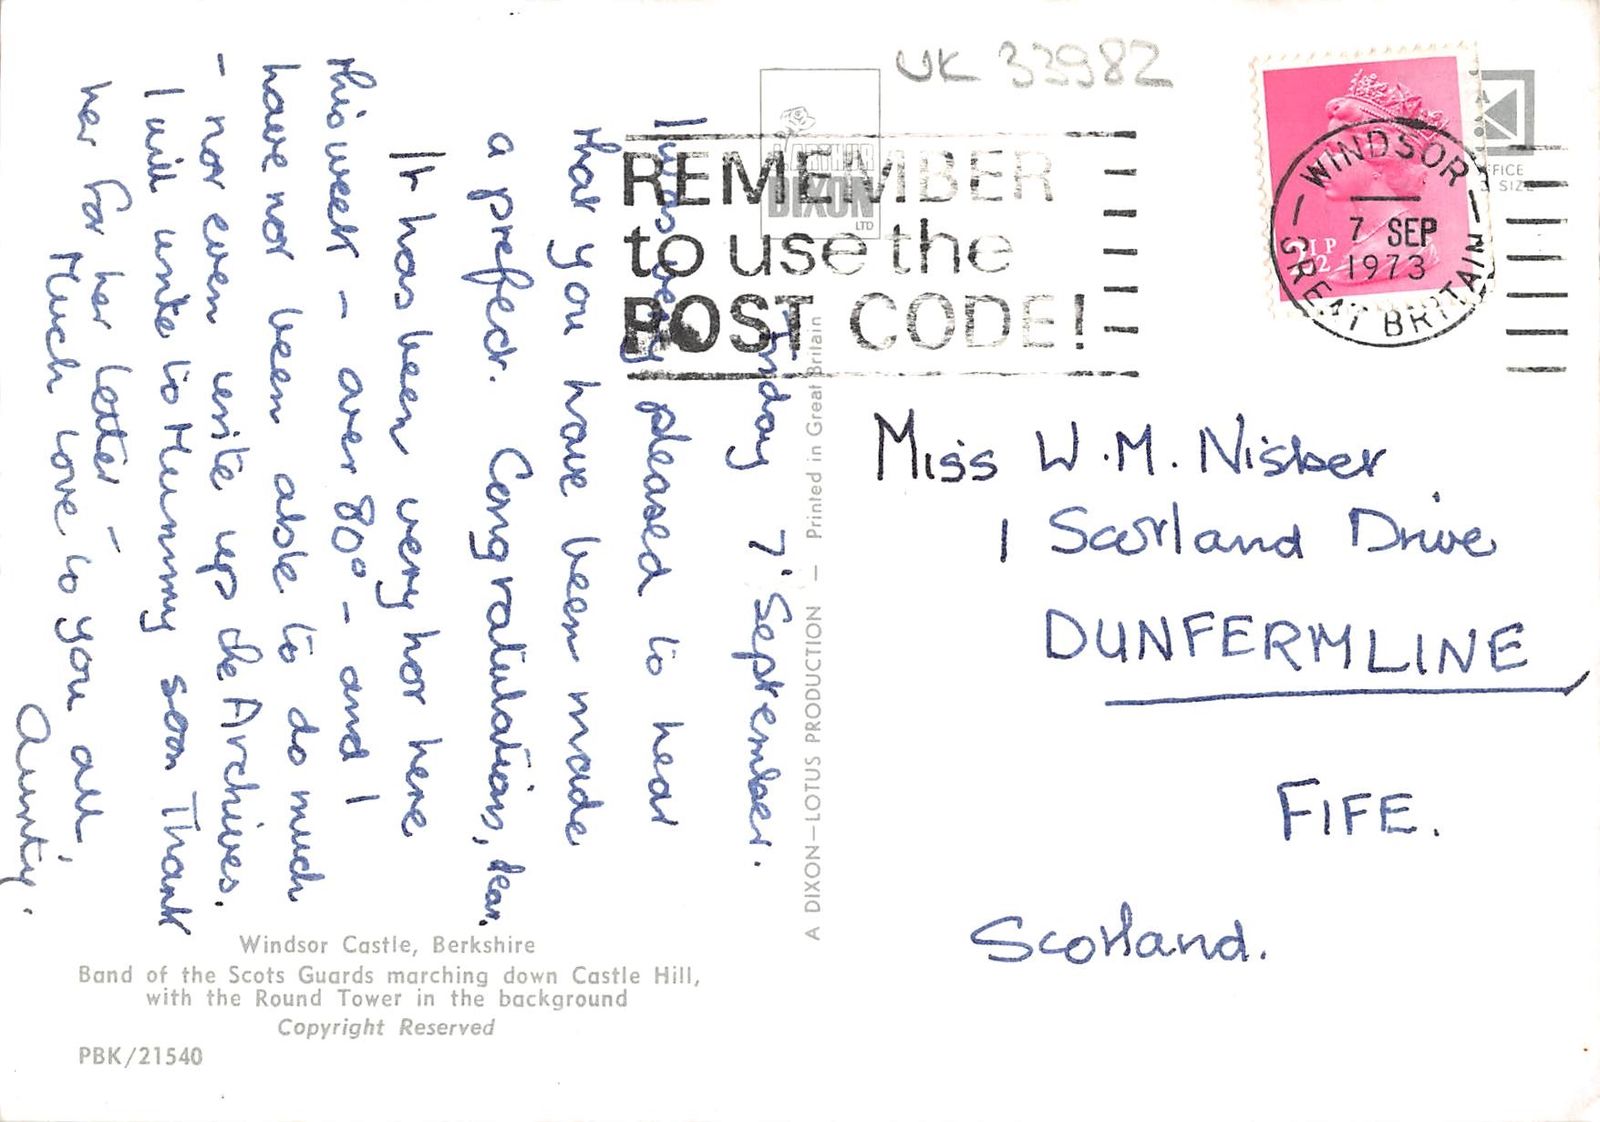 UK 33982
J. ARTHUR
DIXON
LTD
REMEMBER
to use the
POST CODE!
WINDSOR
7 SEP
1973
GREAT BRITAIN
2½P
Friday 7' September.
I was very pleased to hear
that you have been made
a prefect. Congratulations, dear.
It has been very hot here
this week - over 80° - and I
have not been able to do much
- not even write up the Archives.
I will write to Mummy soon Thank
her for her letter -
Much love to you all,
Aunty.
Miss W.M. Nisbet
1 Scotland Drive
DUNFERMLINE
FIFE.
Scotland.
A DIXON-LOTUS PRODUCTION — Printed in Great Britain
Windsor Castle, Berkshire
Band of the Scots Guards marching down Castle Hill,
with the Round Tower in the background
Copyright Reserved
PBK/21540